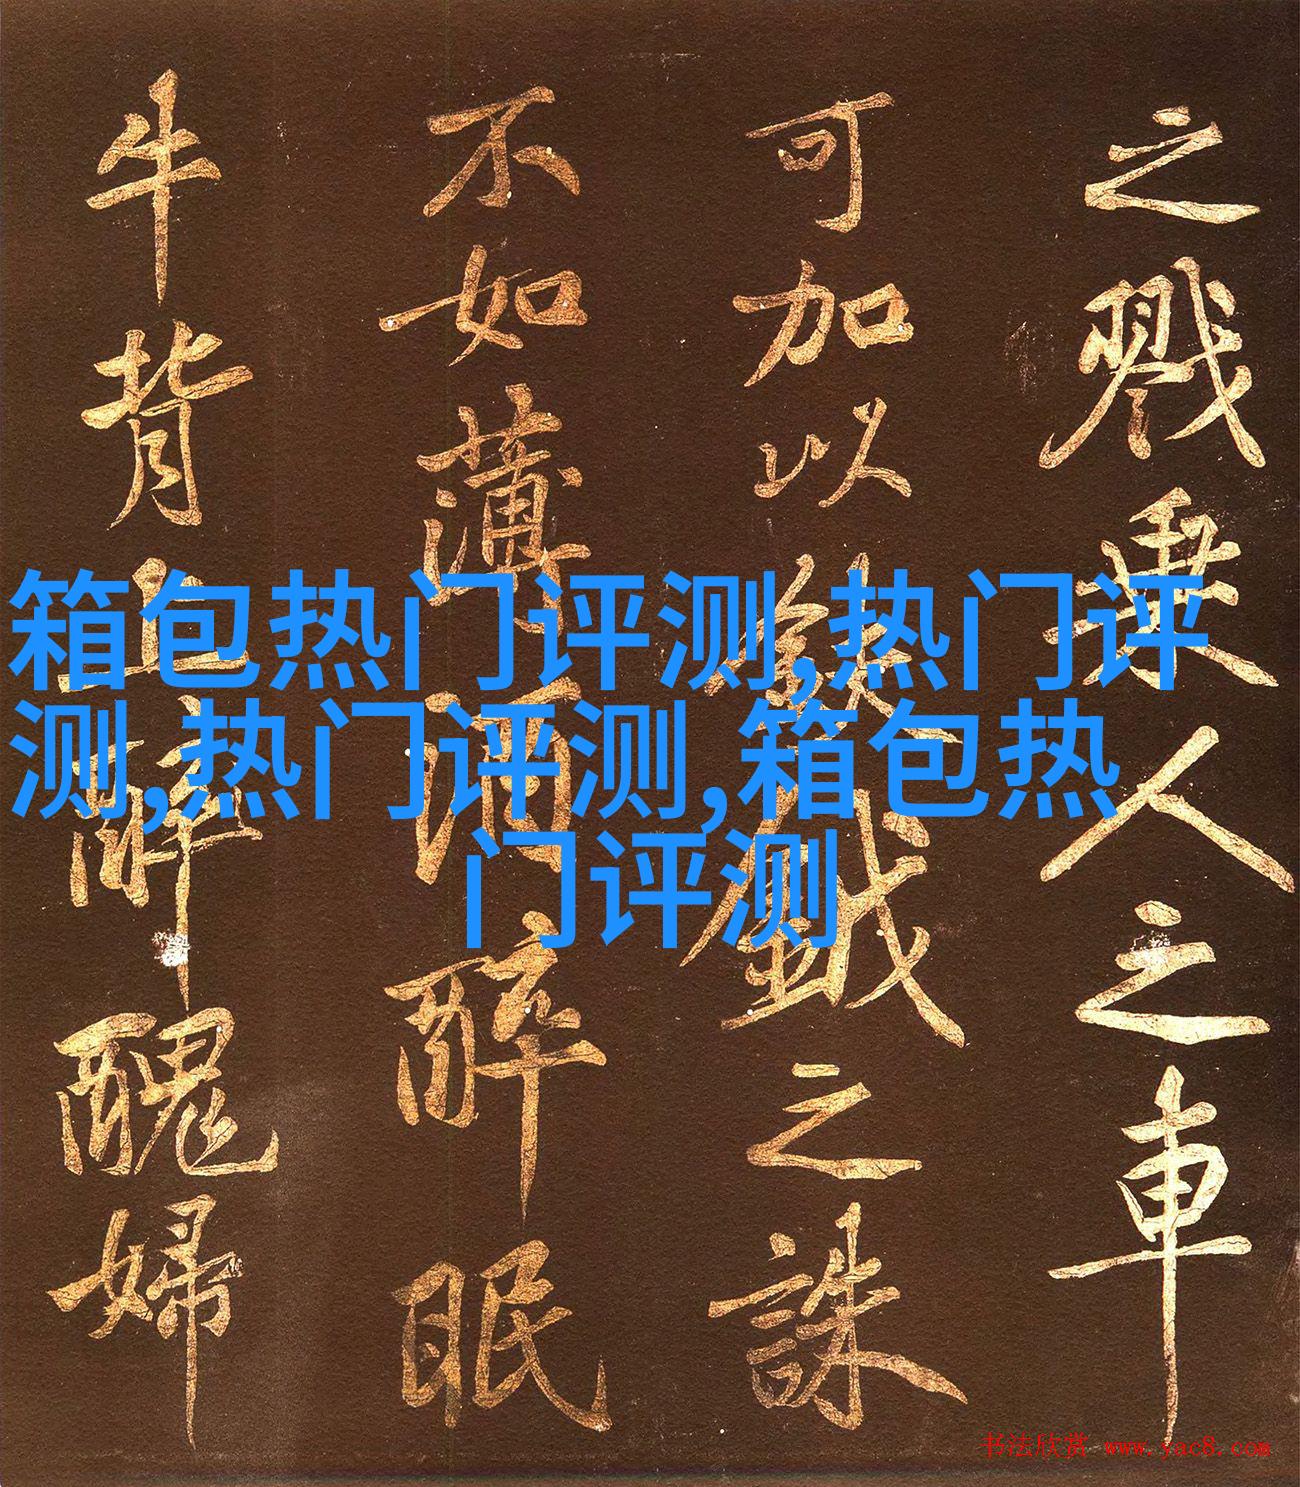 之戮乘人之車
可加以鈇鉞之誅
不如薄酒醉眠
牛背上醉醜婦
箱包热门评测,热门评
测,热门评测,箱包热
门评测
书法欣赏 www.yac8.com